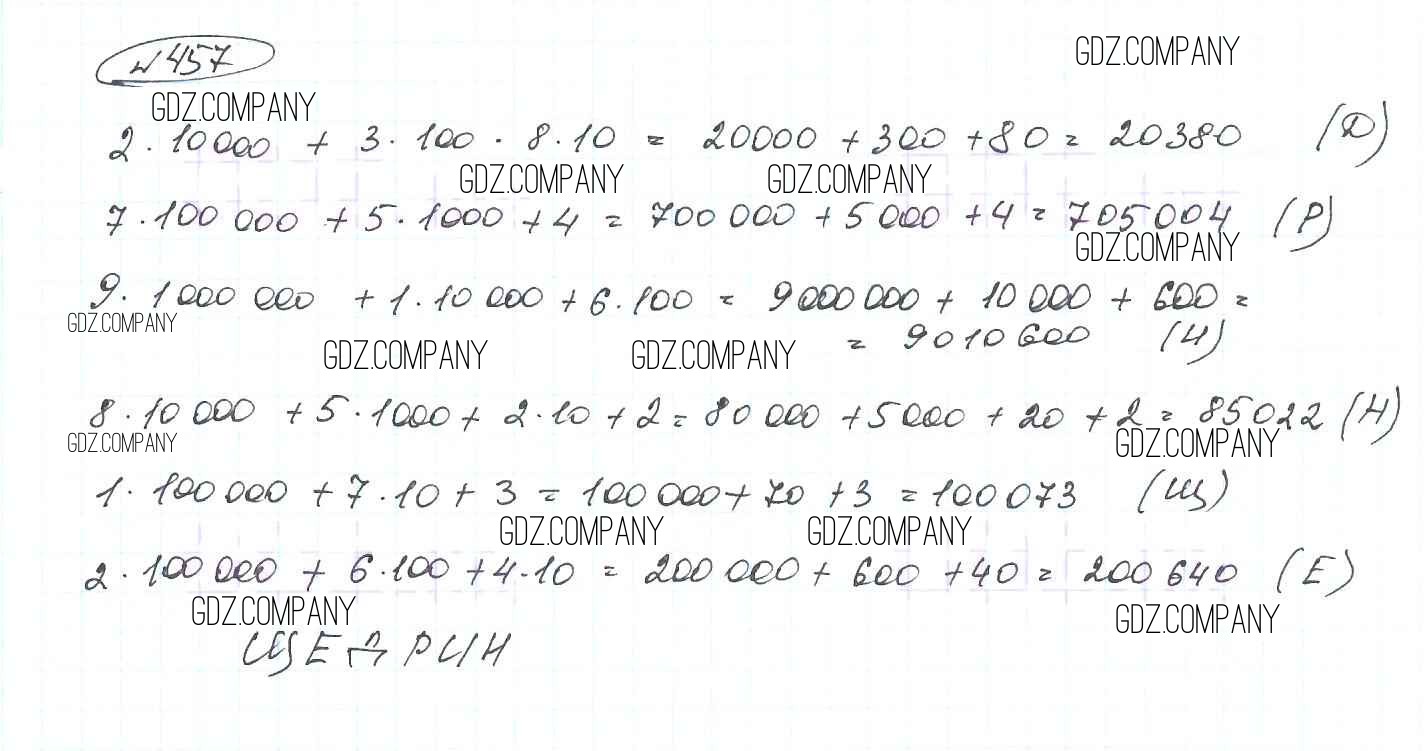 № 457
GDZ.COMPANY
GDZ.COMPANY
2·10000 + 3·100 · 8·10 = 20000 + 300 + 80 = 20380 (Д)
GDZ.COMPANY GDZ.COMPANY
7·100 000 + 5·1000 + 4 = 700 000 + 5 000 + 4 = 705 004 (Р)
GDZ.COMPANY
9·1 000 000 + 1·10 000 + 6·100 = 9 000 000 + 10 000 + 600 =
GDZ.COMPANY
= 9 010 600 (И)
GDZ.COMPANY GDZ.COMPANY
8·10 000 + 5·1000 + 2·10 + 2 = 80 000 + 5000 + 20 + 2 = 85022 (Н)
GDZ.COMPANY GDZ.COMPANY
1·100 000 + 7·10 + 3 = 100 000 + 70 + 3 = 100 073 (Щ)
GDZ.COMPANY GDZ.COMPANY
2·100 000 + 6·100 + 4·10 = 200 000 + 600 + 40 = 200 640 (Е)
GDZ.COMPANY GDZ.COMPANY
ЩЕДРИН